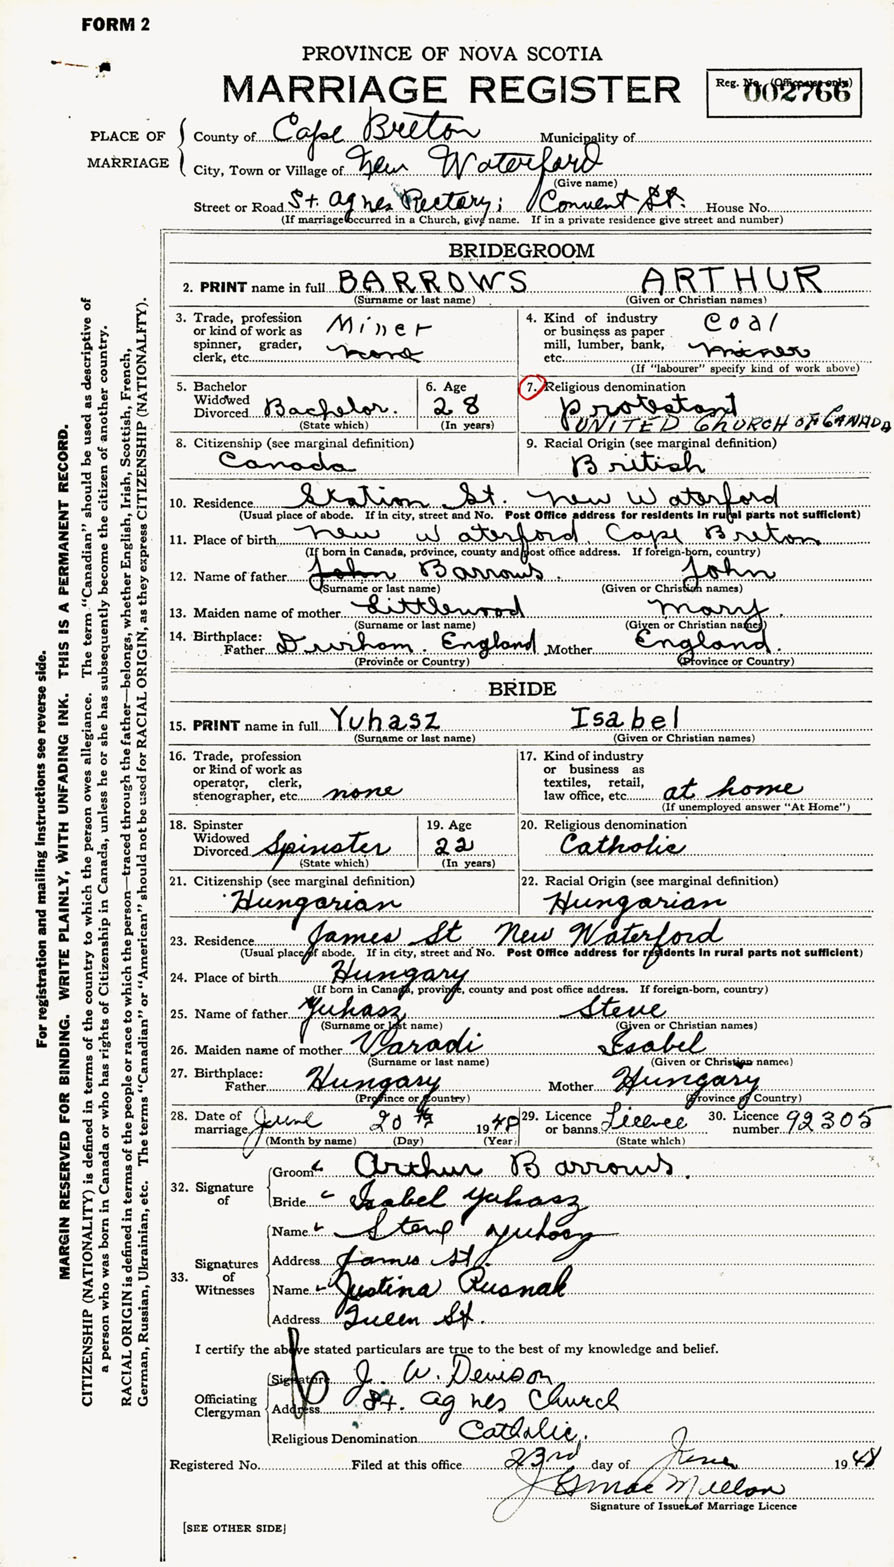 FORM 2
PROVINCE OF NOVA SCOTIA
MARRIAGE REGISTER
Reg. No. (Office use only)
002766
PLACE OF MARRIAGE
County of Cape Breton Municipality of
City, Town or Village of New Waterford
(Give name)
Street or Road St. Agnes Rectory; Convent St. House No.
(If marriage occurred in a Church, give name. If in a private residence give street and number)
BRIDEGROOM
2. PRINT name in full BARROWS ARTHUR
(Surname or last name) (Given or Christian names)
3. Trade, profession or kind of work as spinner, grader, clerk, etc. Miner
4. Kind of industry or business as paper mill, lumber, bank, etc. Coal
(If "labourer" specify kind of work above)
5. Bachelor Widowed Divorced Bachelor.
(State which)
6. Age 28
(In years)
7. Religious denomination Protestant
UNITED CHURCH OF CANADA
8. Citizenship (see marginal definition) Canada
9. Racial Origin (see marginal definition) British
10. Residence Station St. New Waterford
(Usual place of abode. If in city, street and No. Post Office address for residents in rural parts not sufficient)
11. Place of birth New Waterford, Cape Breton
(If born in Canada, province, county and post office address. If foreign-born, country)
12. Name of father John Barrows. John
(Surname or last name) (Given or Christian names)
13. Maiden name of mother Littlewood Mary.
(Surname or last name) (Given or Christian names)
14. Birthplace:
Father Durham. England Mother England.
(Province or Country) (Province or Country)
BRIDE
15. PRINT name in full Yuhasz Isabel
(Surname or last name) (Given or Christian names)
16. Trade, profession or kind of work as operator, clerk, stenographer, etc. none
17. Kind of industry or business as textiles, retail, law office, etc. at home
(If unemployed answer "At Home")
18. Spinster Widowed Divorced Spinster
(State which)
19. Age 22
(In years)
20. Religious denomination Catholic
21. Citizenship (see marginal definition) Hungarian
22. Racial Origin (see marginal definition) Hungarian
23. Residence James St New Waterford
(Usual place of abode. If in city, street and No. Post Office address for residents in rural parts not sufficient)
24. Place of birth Hungary
(If born in Canada, province, county and post office address. If foreign-born, country)
25. Name of father Yuhasz Steve
(Surname or last name) (Given or Christian names)
26. Maiden name of mother Varadi Isabel
(Surname or last name) (Given or Christian names)
27. Birthplace:
Father Hungary Mother Hungary
(Province or Country) (Province or Country)
28. Date of marriage June 20th 1948
(Month by name) (Day) (Year)
29. Licence or banns Licence
(State which)
30. Licence number 92305
32. Signature of
Groom Arthur Barrows.
Bride Isabel Yuhasz
33. Signatures of Witnesses
Name Steve Yuhasz
Address James St.
Name Justina Rusnak
Address Queen St.
I certify the above stated particulars are true to the best of my knowledge and belief.
Officiating Clergyman
Signature J. W. Denison
Address St. Agnes Church
Religious Denomination Catholic.
Registered No. Filed at this office 23rd day of June 1948
J G MacMillan
Signature of Issuer of Marriage Licence
[SEE OTHER SIDE]
For registration and mailing instructions see reverse side.
MARGIN RESERVED FOR BINDING. WRITE PLAINLY, WITH UNFADING INK. THIS IS A PERMANENT RECORD.
CITIZENSHIP (NATIONALITY) is defined in terms of the country to which the person owes allegiance. The term "Canadian" should be used as descriptive of
a person who was born in Canada or who has rights of Citizenship in Canada, unless he or she has subsequently become the citizen of another country.
RACIAL ORIGIN is defined in terms of the people or race to which the person—traced through the father—belongs, whether English, Irish, Scottish, French,
German, Russian, Ukrainian, etc. The terms "Canadian" or "American" should not be used for RACIAL ORIGIN, as they express CITIZENSHIP (NATIONALITY).